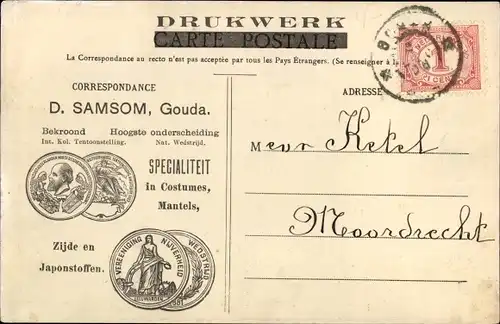 DRUKWERK
CARTE POSTALE
La Correspondance au recto n'est pas acceptée par tous les Pays Étrangers. (Se renseigner à la
CORRESPONDANCE
D. SAMSOM, Gouda.
Bekroond Hoogste onderscheiding
Int. Kol. Tentoonstelling. Nat. Wedstrijd.
SPECIALITEIT
in Costumes,
Mantels,
Zijde en
Japonstoffen.
VEREENIGING NIJVERHEID
WEDSTRIJD
ADRESSE
1
CENT
Mevr Ketel
Moordrecht